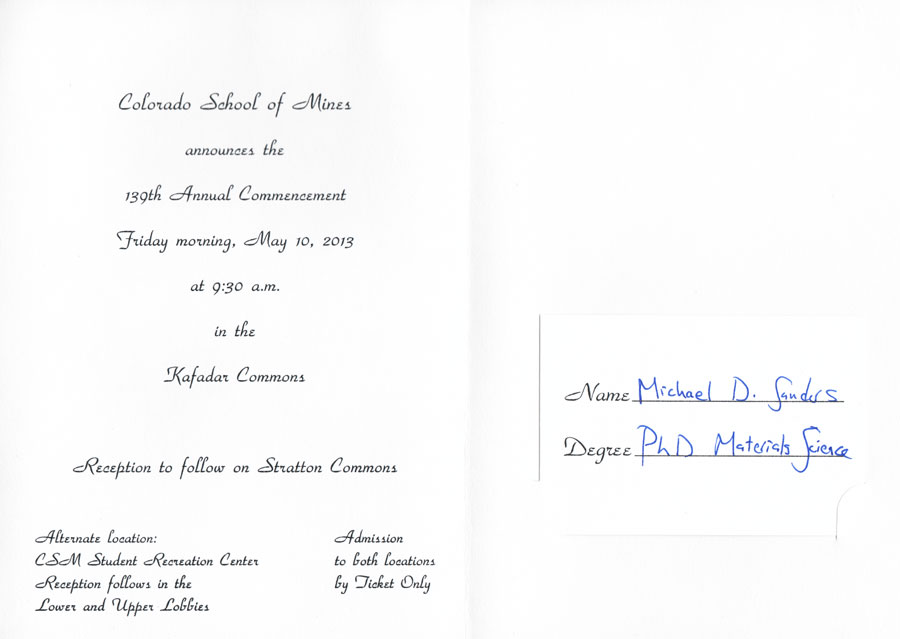 Colorado School of Mines
announces the
139th Annual Commencement
Friday morning, May 10, 2013
at 9:30 a.m.
in the
Kafadar Commons
Reception to follow on Stratton Commons
Alternate location:
CSM Student Recreation Center
Reception follows in the
Lower and Upper Lobbies
Admission
to both locations
by Ticket Only
Name Michael D. Sanders
Degree PhD Materials Science